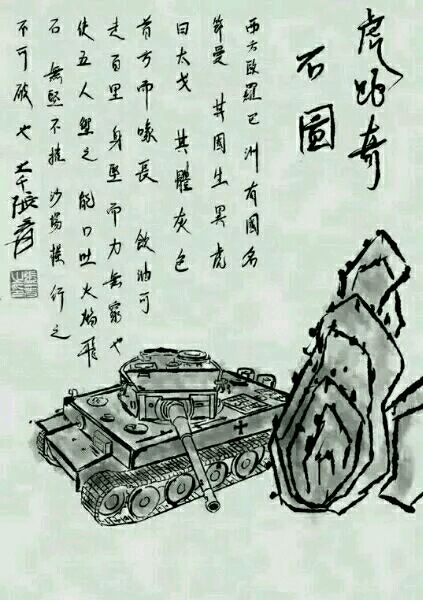 虎踞奇
石圖
西方歐羅巴洲有國名
曼 其國生異虎
曰太戈 其體灰色
首方而喙長 飲油可
走百里 身堅而力無窮也
使五人之 能口吐火焰飛
石 無堅不摧 沙場橫行之
不可破也 大千張爰